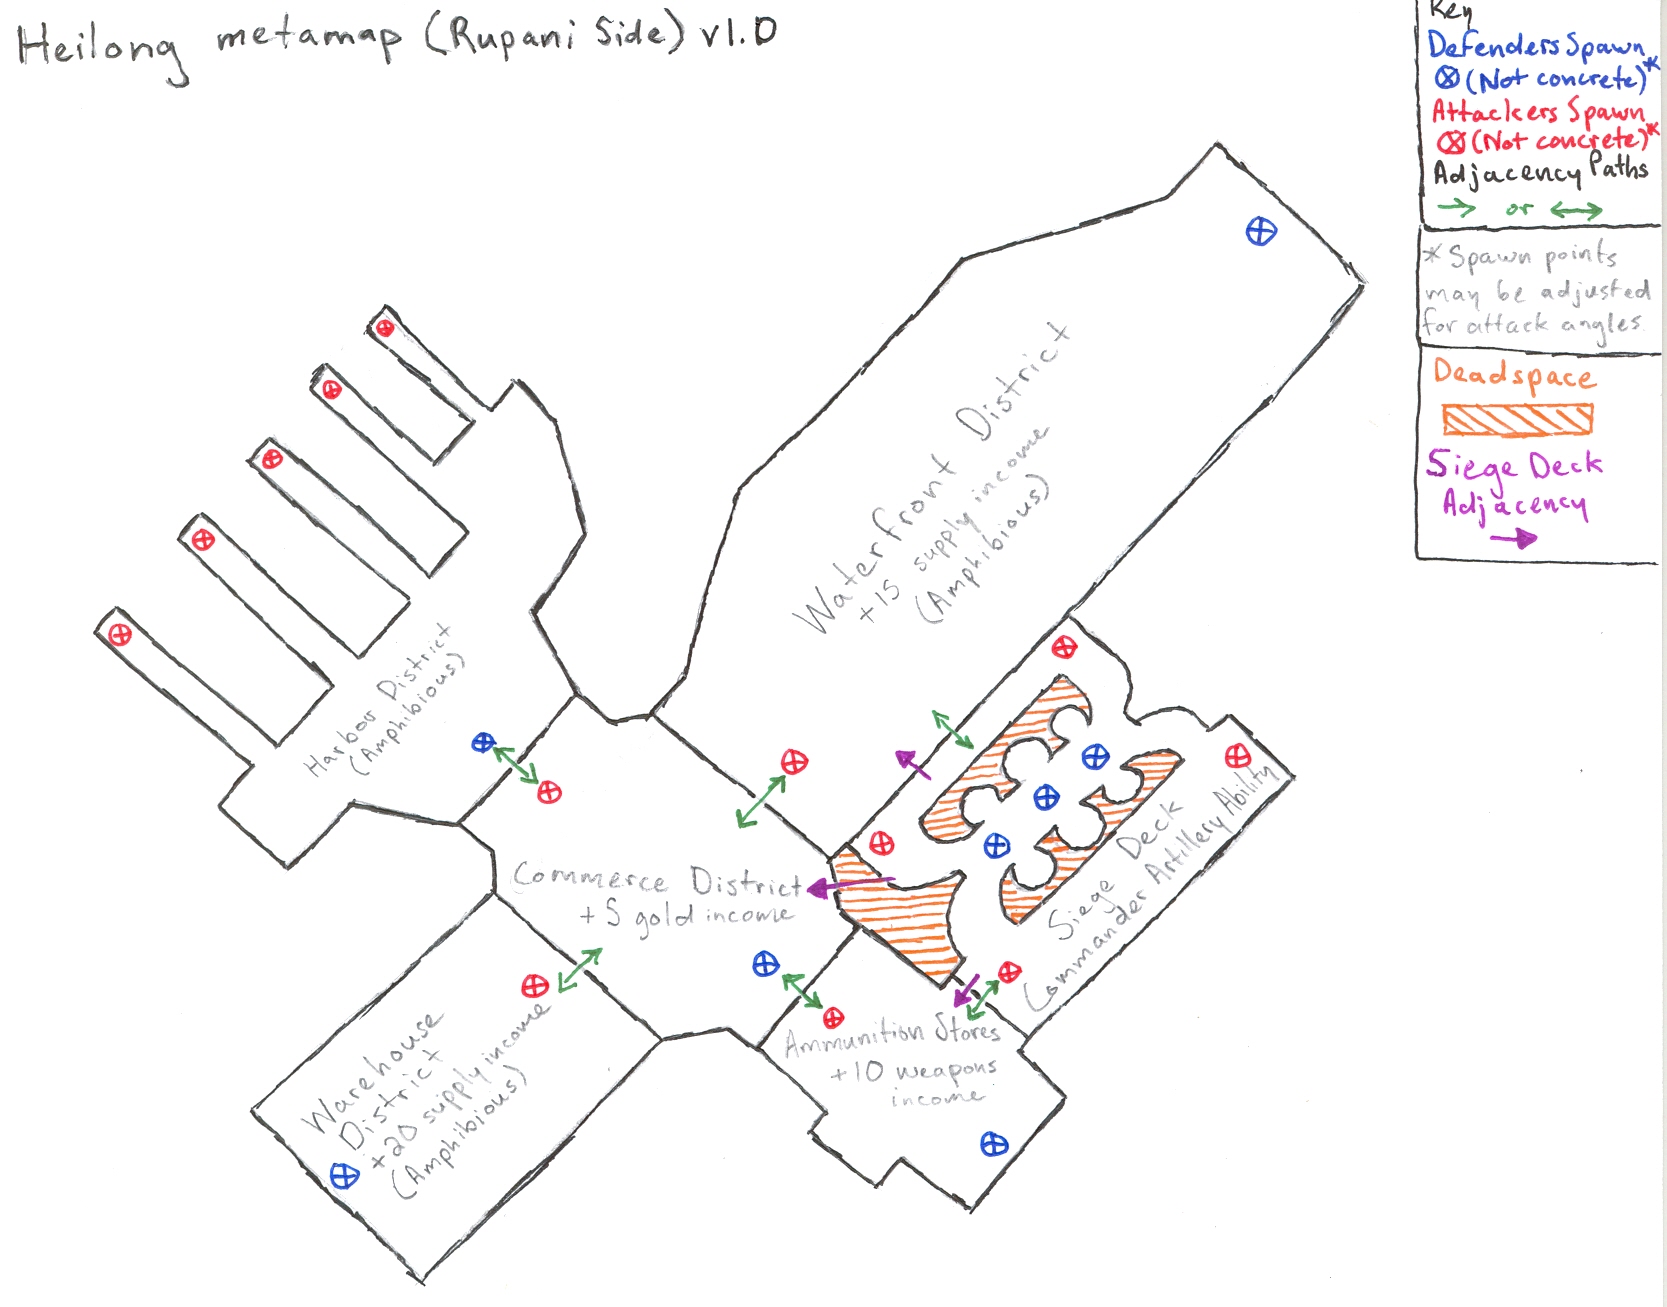 Heilong metamap (Rupani Side) v1.0
Key
Defenders Spawn
(Not concrete)*
Attackers Spawn
(Not concrete)*
Adjacency Paths
or
* Spawn points
may be adjusted
for attack angles.
Deadspace
Siege Deck
Adjacency
Waterfront District
+15 supply income
(Amphibious)
Harbor District
(Amphibious)
Commerce District
+5 gold income
Siege Deck
Commander Artillery Ability
Warehouse
District
+20 supply income
(Amphibious)
Ammunition Stores
+10 weapons
income